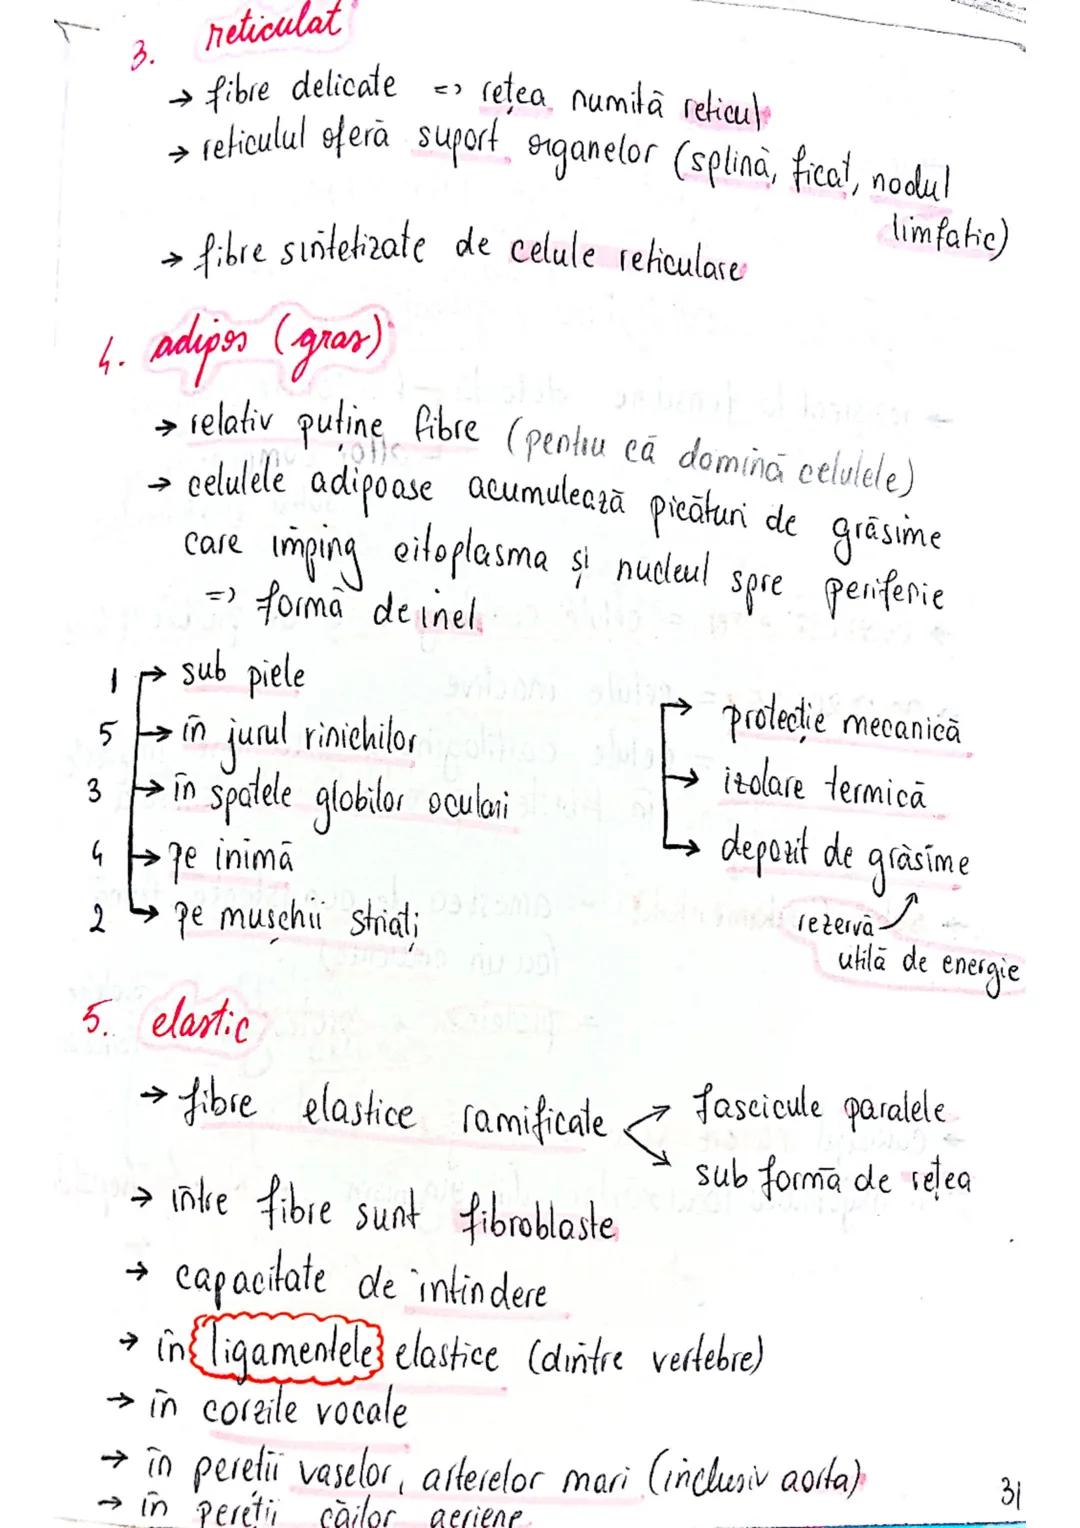 3. reticulat
→ fibre delicate => rețea numită reticul
→ reticulul oferă suport organelor (splină, ficat, nodul
limfatic)
→ fibre sintetizate de celule reticulare
4. adipos (gras)
→ relativ puține fibre (pentru că domină celulele)
→ celulele adipoase acumulează picături de grăsime
care împing citoplasma și nucleul spre periferie
=> formă de inel
1 → sub piele
5 → în jurul rinichilor
3 → în spatele globilor oculari
4 → pe inimă
2 → pe mușchii striați
→ protecție mecanică
→ izolare termică
→ depozit de grăsime
rezervă
utilă de energie
5. elastic
→ fibre elastice ramificate
fascicule paralele
sub formă de rețea
→ între fibre sunt fibroblaste
→ capacitate de întindere
→ în ligamentele elastice (dintre vertebre)
→ în corzile vocale
→ în pereții vaselor, arterelor mari (inclusiv aorta)
→ în pereții căilor aeriene
31